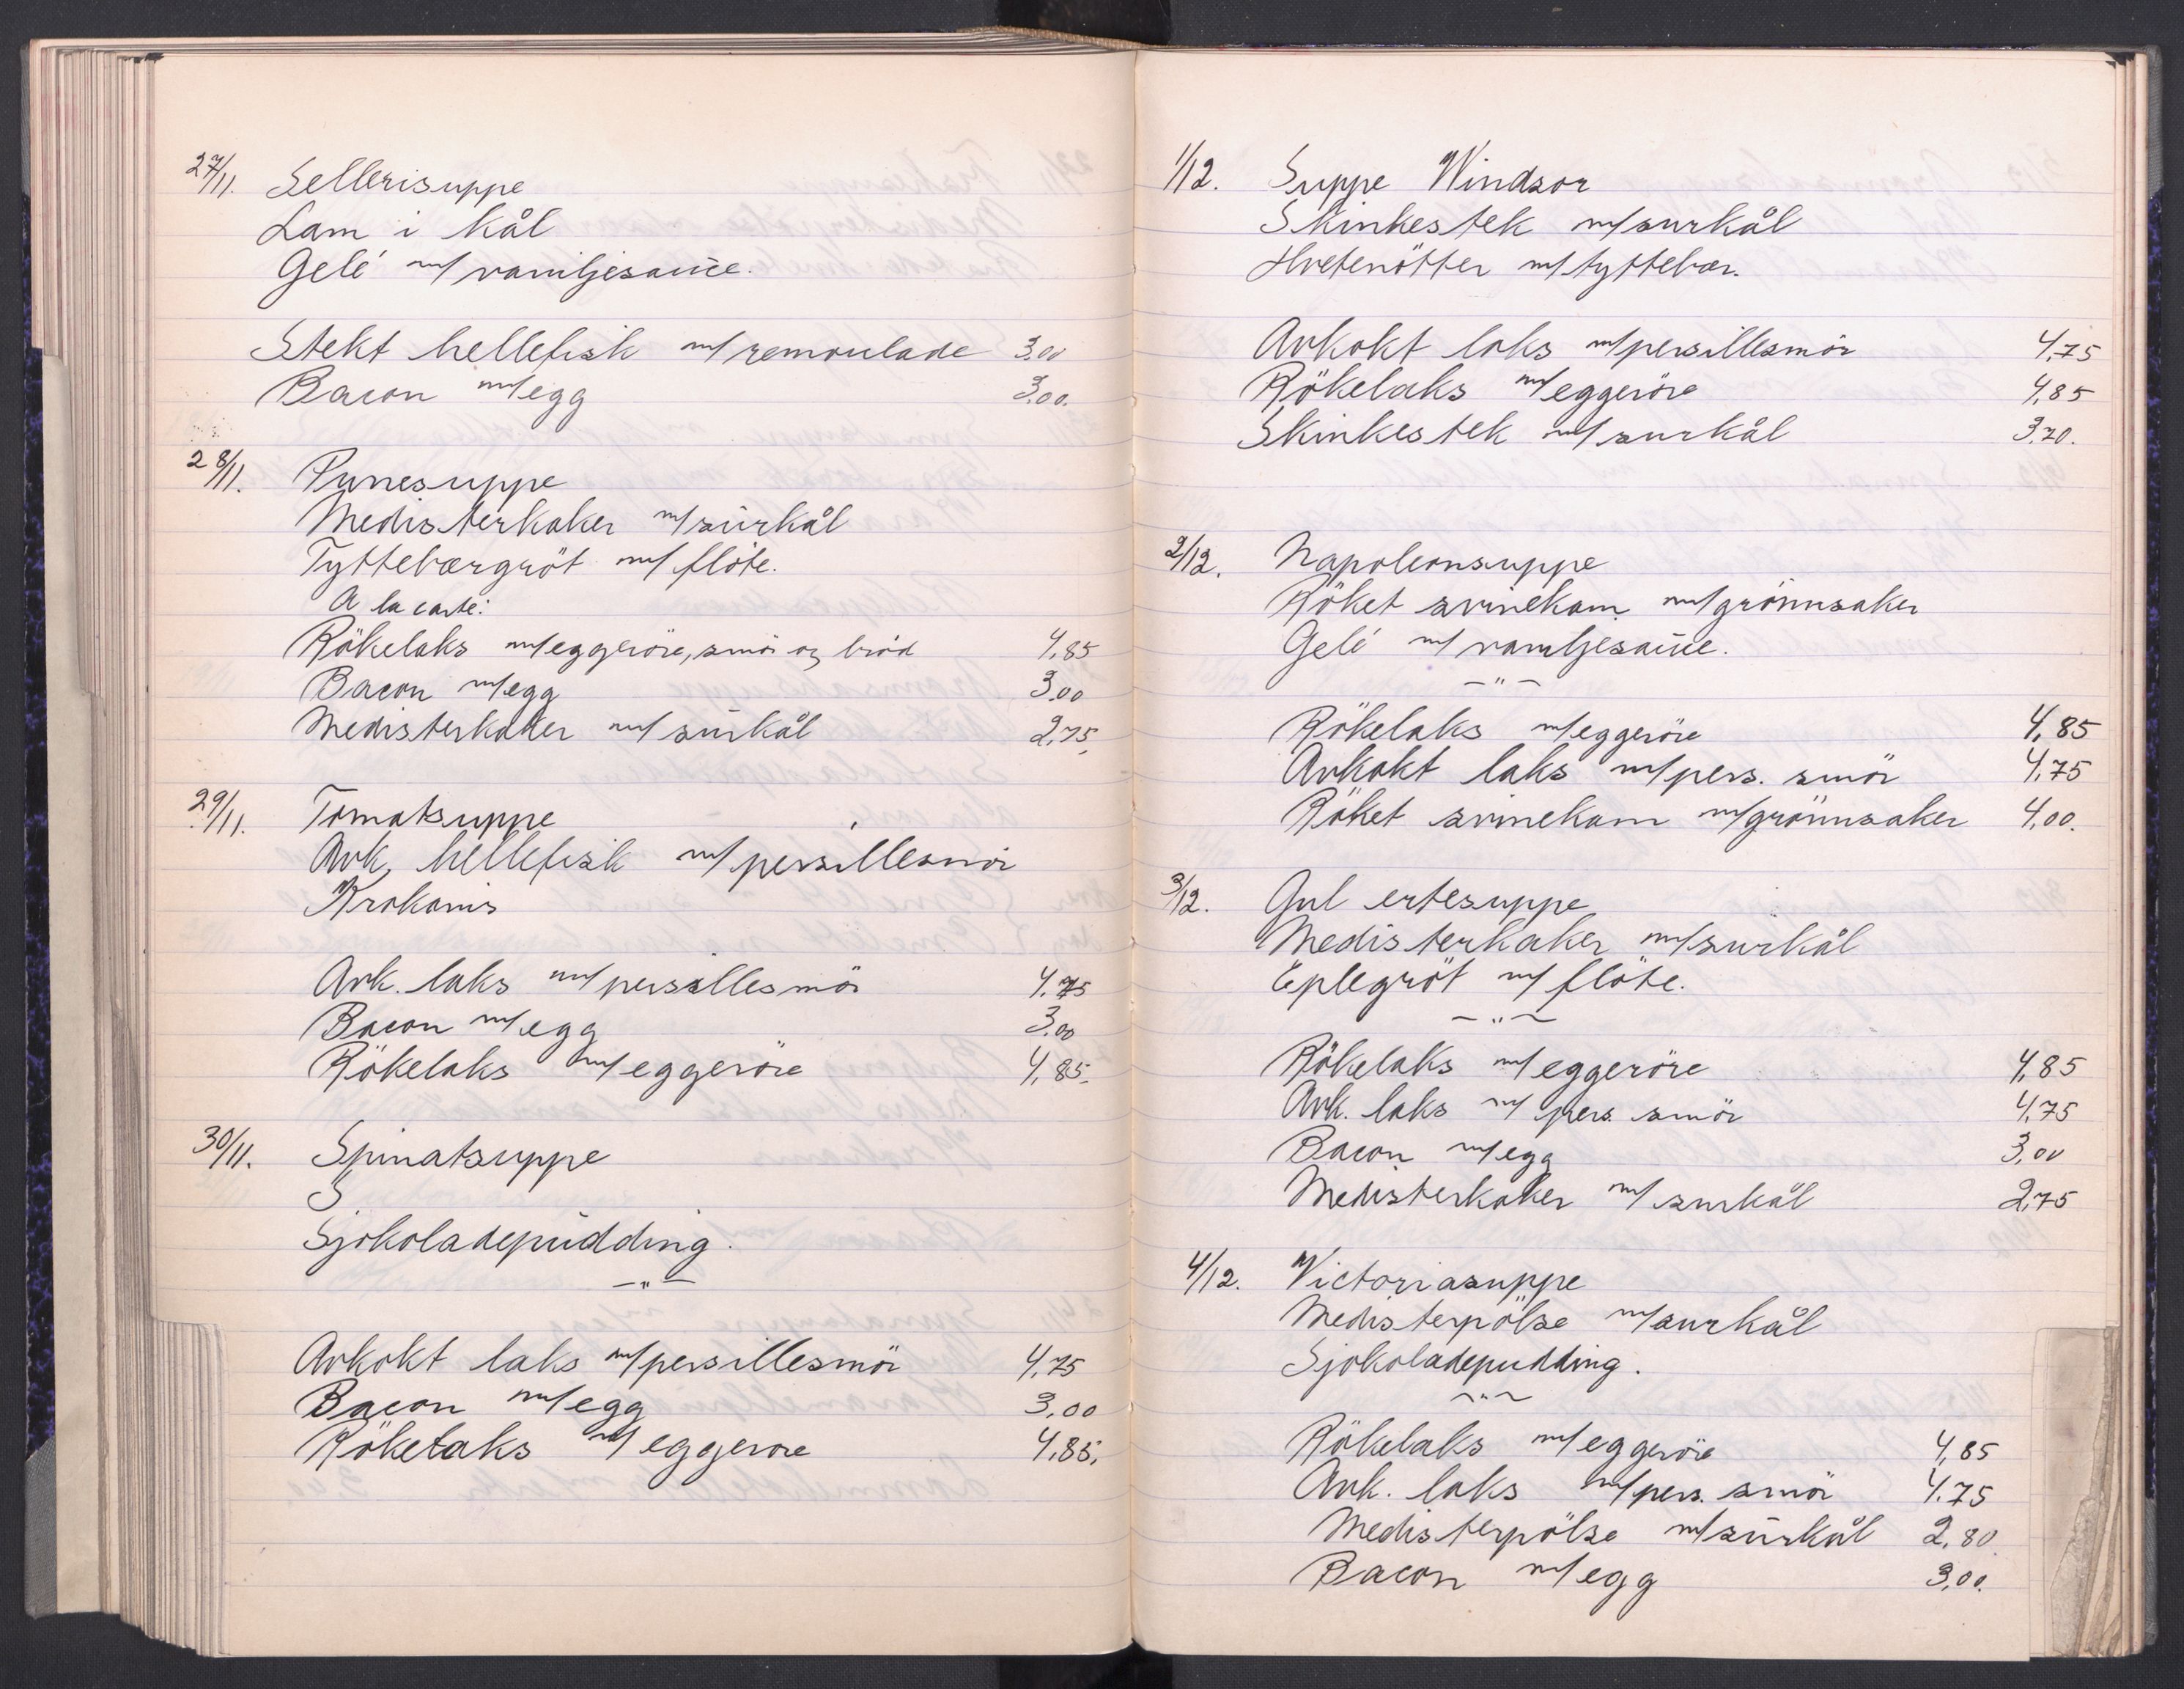 27/11. Sellerisuppe
Lam i kål
Gelé m/vaniljesause.
Stekt hellefisk m/remoulade 3.00
Bacon m/egg 3.00.
28/11. Puresuppe
Medisterkaker m/surkål
Tyttebærgröt m/flöte.
A la carte:
Rökelaks m/eggeröre, smör og bröd 4,85
Bacon m/egg 3.00
Medisterkaker m/surkål 2,75.
29/11. Tomatsuppe
Avk. hellefisk m/persillesmör
Krokanis
Avk. laks m/persillesmör 4.75
Bacon m/egg 3.00
Rökelaks m/eggeröre 4,85.
30/11. Spinatsuppe
S
Sjokoladepudding.
—"—
Avkokt laks m/persillesmör 4,75
Bacon m/egg 3,00
Rökelaks m/eggeröre 4,85.
1/12. Suppe Windsor
Skinkestek m/surkål
Hvetenötter m/tyttebær.
Avkokt laks m/persillesmör 4,75
Rökelaks m/eggeröre 4,85
Skinkestek m/surkål 3,20.
2/12. Napoleonsuppe
Röket svinekam m/grönnsaker
Gelé m/vaniljesause.
—"—
Rökelaks m/eggeröre 4,85
Avkokt laks m/pers. smör 4,75
Röket svinekam m/grönnsaker 4,00.
3/12. Gul ertesuppe
Medisterkaker m/surkål
Eplegröt m/flöte.
—"—
Rökelaks m/eggeröre 4,85
Avk. laks m/pers. smör 4,75
Bacon m/egg 3,00
Medisterkaker m/surkål 2,75
4/12. Victoriasuppe
Medisterpölse m/surkål
Sjokoladepudding.
—"—
Rökelaks m/eggeröre 4,85
Avk. laks m/pers. smör 4.75
Medisterpölse m/surkål 2,80
Bacon m/egg 3,00.